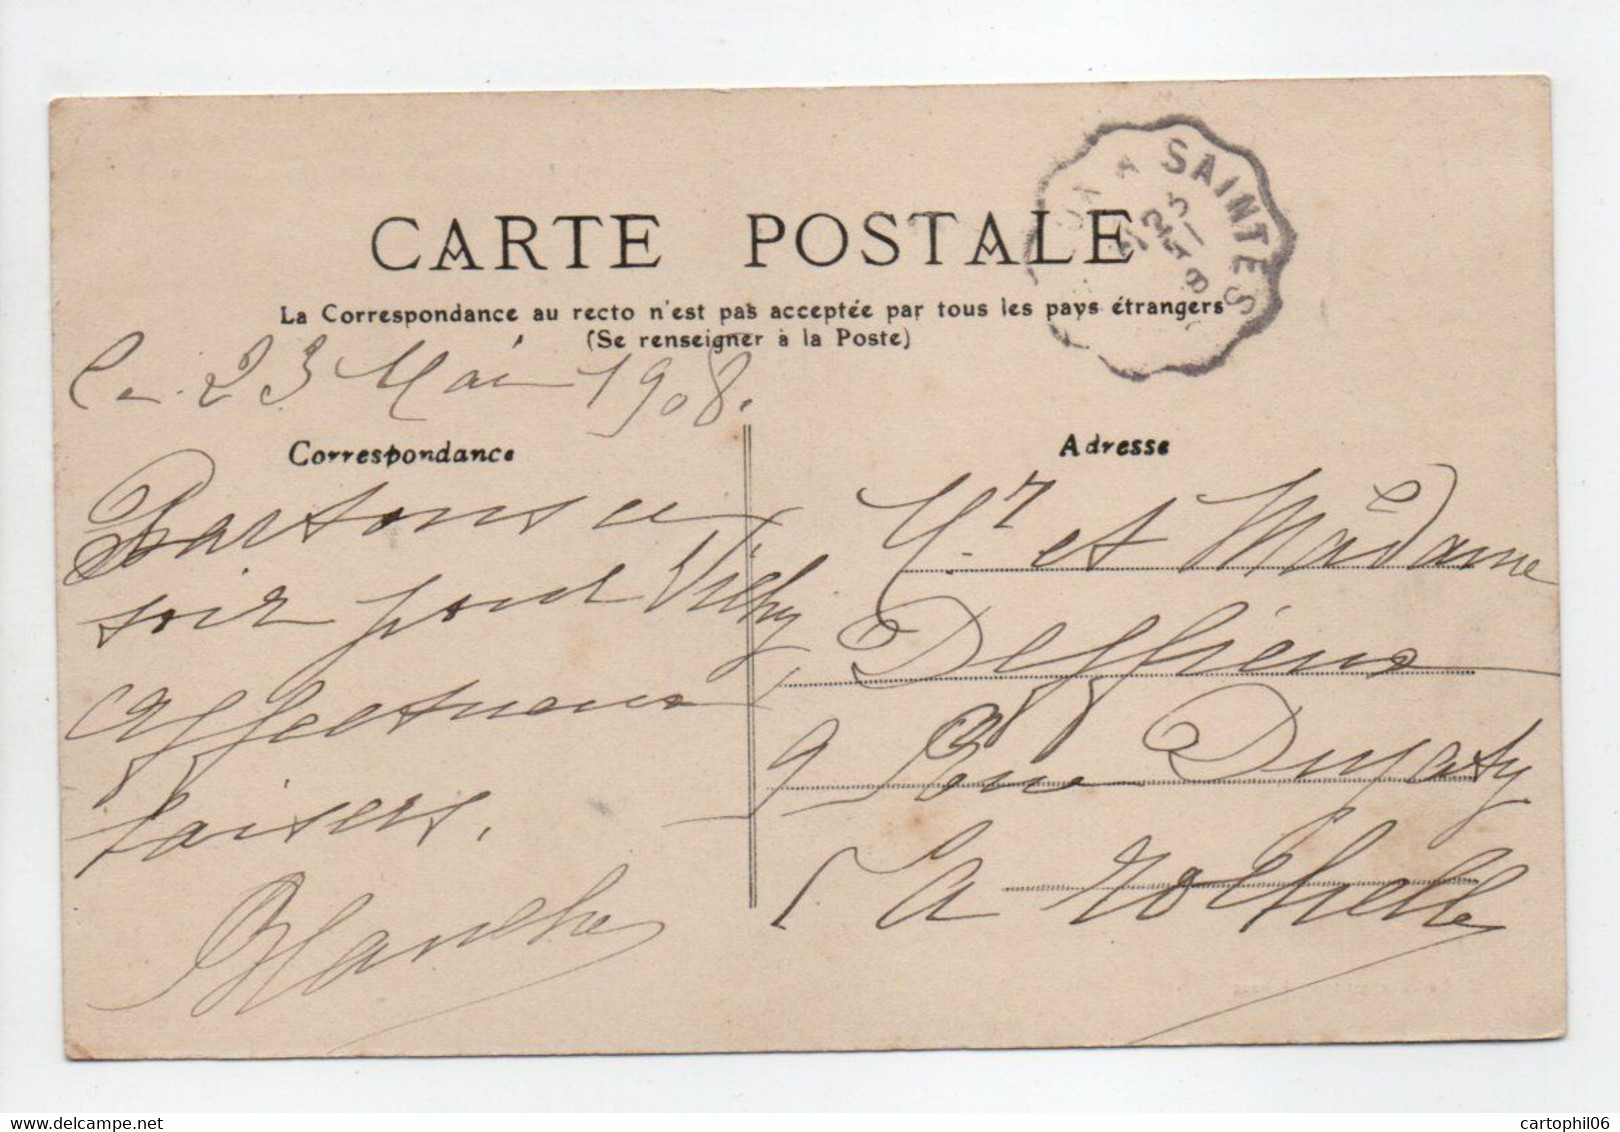 CARTE POSTALE
La Correspondance au recto n'est pas acceptée par tous les pays étrangers
(Se renseigner à la Poste)
A SAINTES
Le 23 Mai 1908.
Correspondance
Partons ce
soir pour Vichy
Affectueux
baisers.
Blanche
Adresse
Mr et Madame
Deffieux
9 Rue Dupaty
La rochelle
cartophil06